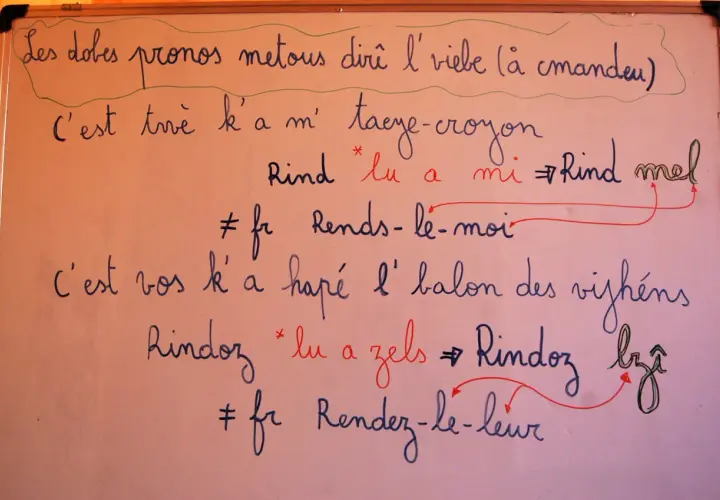 Les dobes pronos metous dirî l' viebe (å cmandeu)
C'est twè k' a m' taeye-croyon
Rind *lu a mi ⇒ Rind mel
≠ fr Rends-le-moi
C'est vos k' a hapé l' balon des vijhéns
Rindoz *lu a zels ⇒ Rindoz lzî
≠ fr Rendez-le-leur